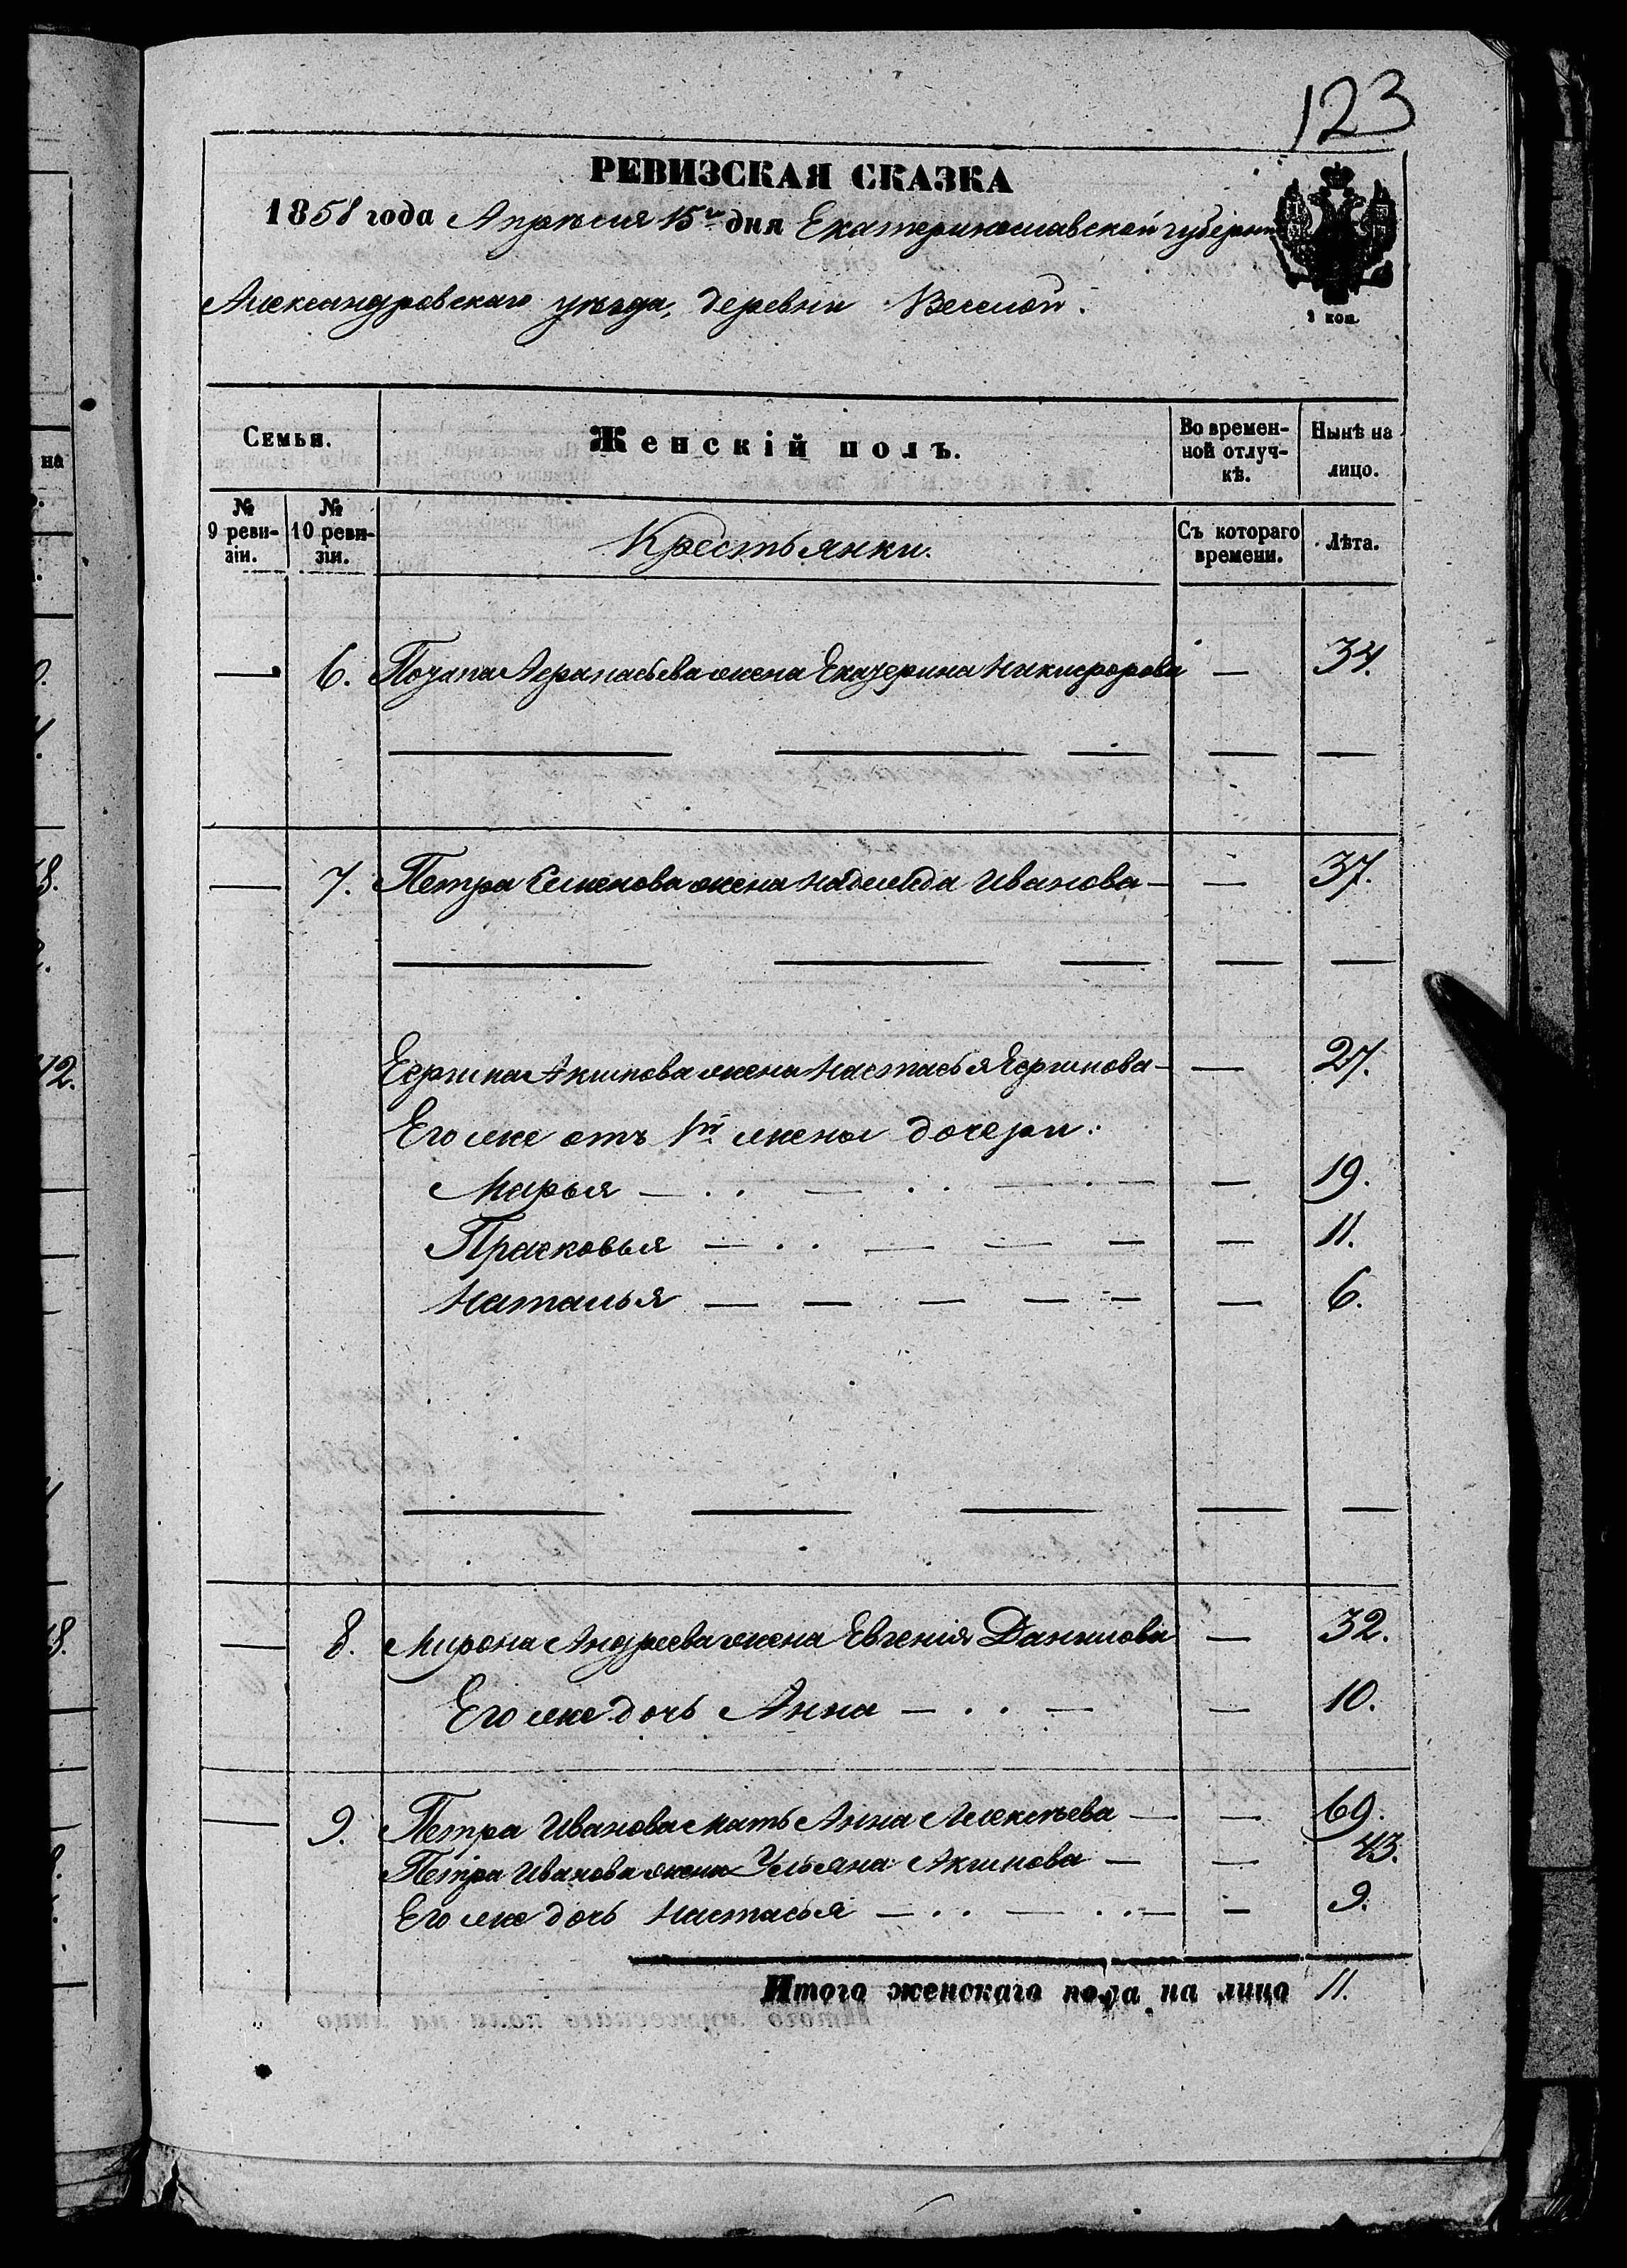 123
РЕВИЗСКАЯ СКАЗКА
1858 года Апрѣля 15го дня Екатеринославской губерніи
Александровскаго уѣзда, деревни Веселой.
2 коп.
Семьи.
Женскій полъ.
Во времен-
ной отлуч-
кѣ.
Нынѣ на
лицо.
№
9 реви-
зіи.
№
10 реви-
зіи.
Крестьянки.
Съ котораго
времени.
Лѣта.
— 6. Потапа Афанасьева жена Екатерина Никифорова — 34.
— 7. Петра Семенова жена Надежда Иванова — — 37.
Ефима Акимова жена Настасья Ефимова — — 27.
Его же отъ 1й жены дочери:
Марья — 19.
Прасковья — 11.
Наталья — 6.
— 8. Мирона Андреева жена Евгенія Данилова — 32.
Его же дочь Анна — 10.
— 9. Петра Иванова мать Анна Алексѣева — — 69.
Петра Иванова жена Ульяна Акимова — — 43.
Его же дочь Настасья — 9.
Итого женскаго пола на лицо 11.